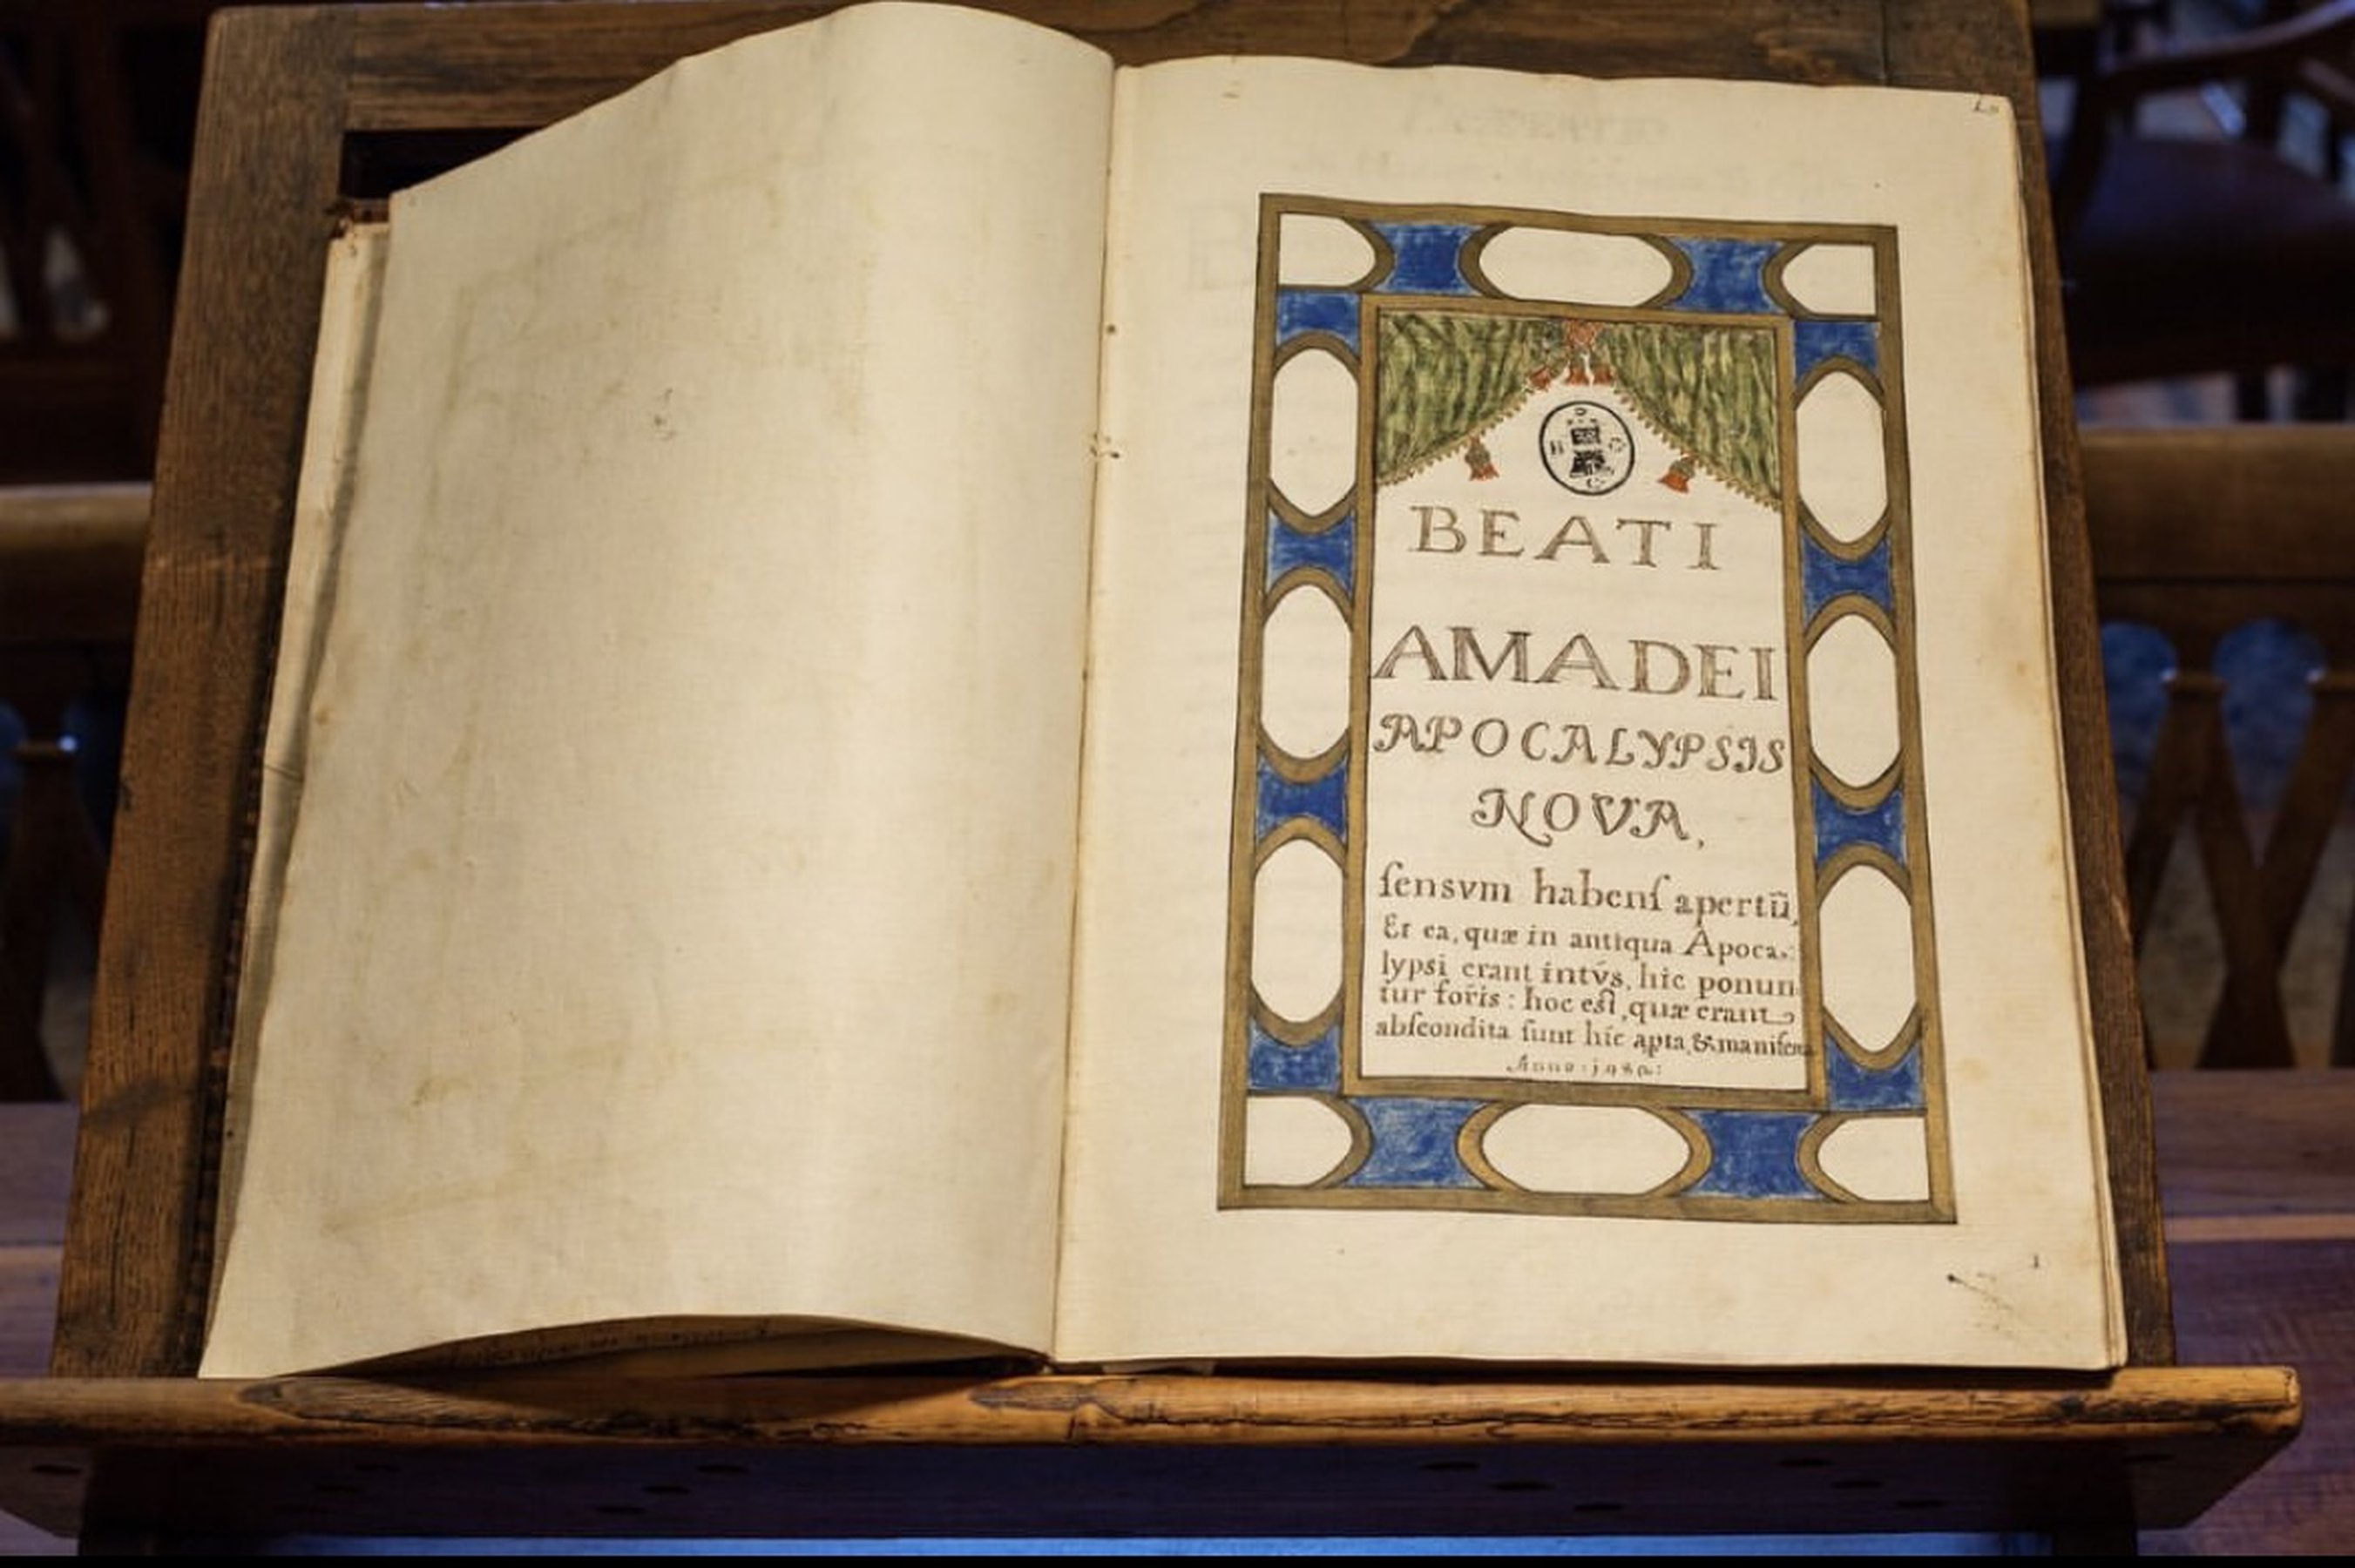 BEATI
AMADEI
APOCALYPSIS
NOVA,
ſensvm habenſ apertũ,
Et ea, quæ in antiqua Apoca-:
lypsi erant intvs, hic ponun
tur foris : hoc est, quæ erant
abſcondita ſunt hic apta, & manifeſta
Anno
1